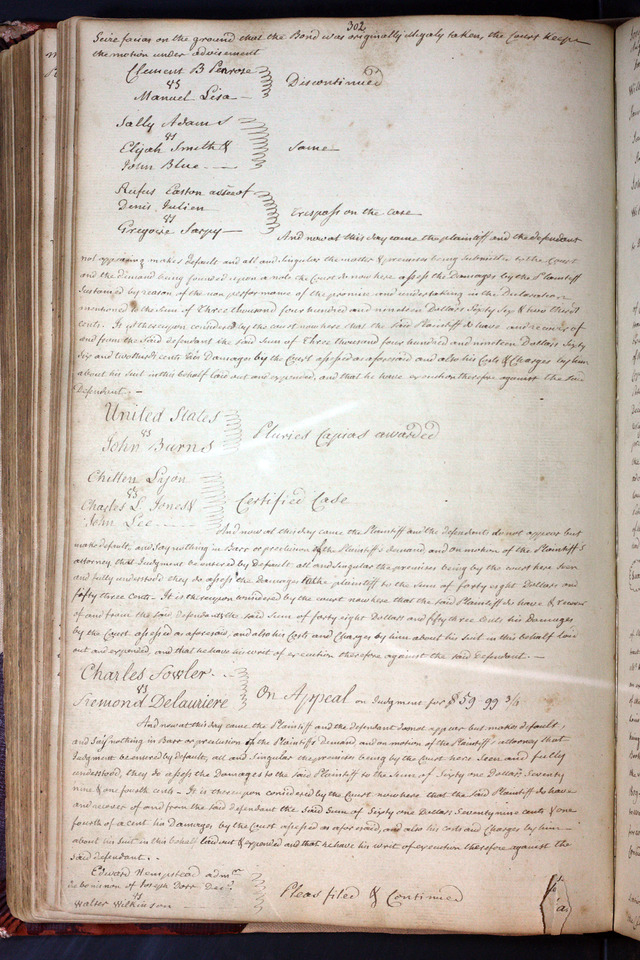 302
Scire facias on the ground that the Bond was originally illegaly taken, the Court keeps
the motion under advisement
Clement B Penrose
vs
Discontinued
Manuel Lisa
Sally Adams
vs
Elijah Smith &
Same
John Blue
Rufus Easton assee of
Denis Julien
vs
trespass on the case
Gregoire Sarpy
And now at this day came the plaintiff and the defendant
not appearing makes default and all and singular the matter & premises being submitted to the Court
and the demand being founded upon a note the Court do now here assess the Damages by the Plaintiff
sustained by reason of the non performance of the promise and undertaking in the Declaration
mentioned to the Sum of Three thousand four hundred and nineteen Dollars Sixty Six & two thirds
cents. It is thereupon considered by the court now here that the Said Plaintiff do have and recover of
and from the Said defendant the Said Sum of Three thousand four hundred and nineteen Dollars Sixty
Six and two thirds cents his Damages by the Court assessed as aforesaid and also his Costs & Charges by him
about his Suit in this behalf laid out and expended, and that he have execution therefore against the said
Defendant. -
United States
vs
Pluries Capias awarded
John Burns
Chitten Lyon
vs
Charles L Jones &
Certified Case
John Lee
And now at this day came the Plaintiff and the defendants do not appear but
make default, and Say nothing in Barr or preclusion of the Plaintiff's demand, and on motion of the Plaintiff's
attorney that Judgment be entered by Default, all and Singular the premises being by the court here Seen
and fully understood, they do assess the Damages to the plaintiff to the Sum of forty eight Dollars and
fifty three Cents - It is thereupon considered by the court now here that the said Plaintiff do have & recover
of and from the said defendants the said Sum of forty eight Dollars and fifty three Cents his Damages
by the Court assessed as aforesaid, and also his Costs and Charges by him about his Suit in this behalf laid
out and expended, and that he have his writ of execution therefore against the Said defendant. -
Charles Fowler
vs
On Appeal on Judgment for $59 99 3/4
Fremond Delauriere
And now at this day came the Plaintiff and the defendant do not appear but makes default,
and Says nothing in Barr or preclusion of the Plaintiff's Demand and on motion of the Plaintiff's attorney that
Judgment be entered by default, all and Singular the premises being by the Court here Seen and fully
understood, they do assess the Damages to the Said Plaintiff to the Sum of Sixty one Dollars Seventy
nine & one fourth cents - It is thereupon considered by the Court now here that the Said Plaintiff do have
and recover of and from the said defendant the Said Sum of Sixty one Dollars Seventy nine cents & one
fourth of a cent his Damages by the Court assessed as aforesaid, and also his costs and Charges by him
about his Suit in this behalf laid out & expended and that he have his writ of execution therefore against the
Said defendant. -
Edward Hempstead admr.
de bonis non of Joseph Decd.
vs
Pleas filed & Continued
Walter Wilkinson